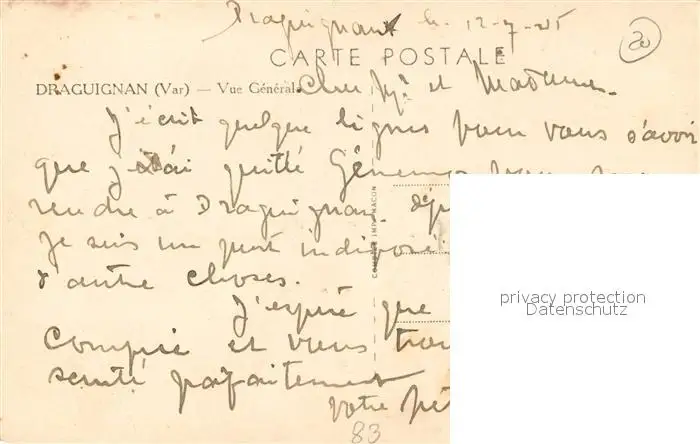 Draguignan le 12-7-25
20
CARTE POSTALE
DRAGUIGNAN (Var) — Vue Générale
Cher Mr et Madame.
J'écrit quelque lignes pour vous savoir
que j'ai quitté
rendre à Draguignan.
Je suis un peut indisposé
d'autre choses.
J'espré que
compris et vous
senté parfaitement
votre
83
COMBIER IMP. MACON
privacy protection
Datenschutz